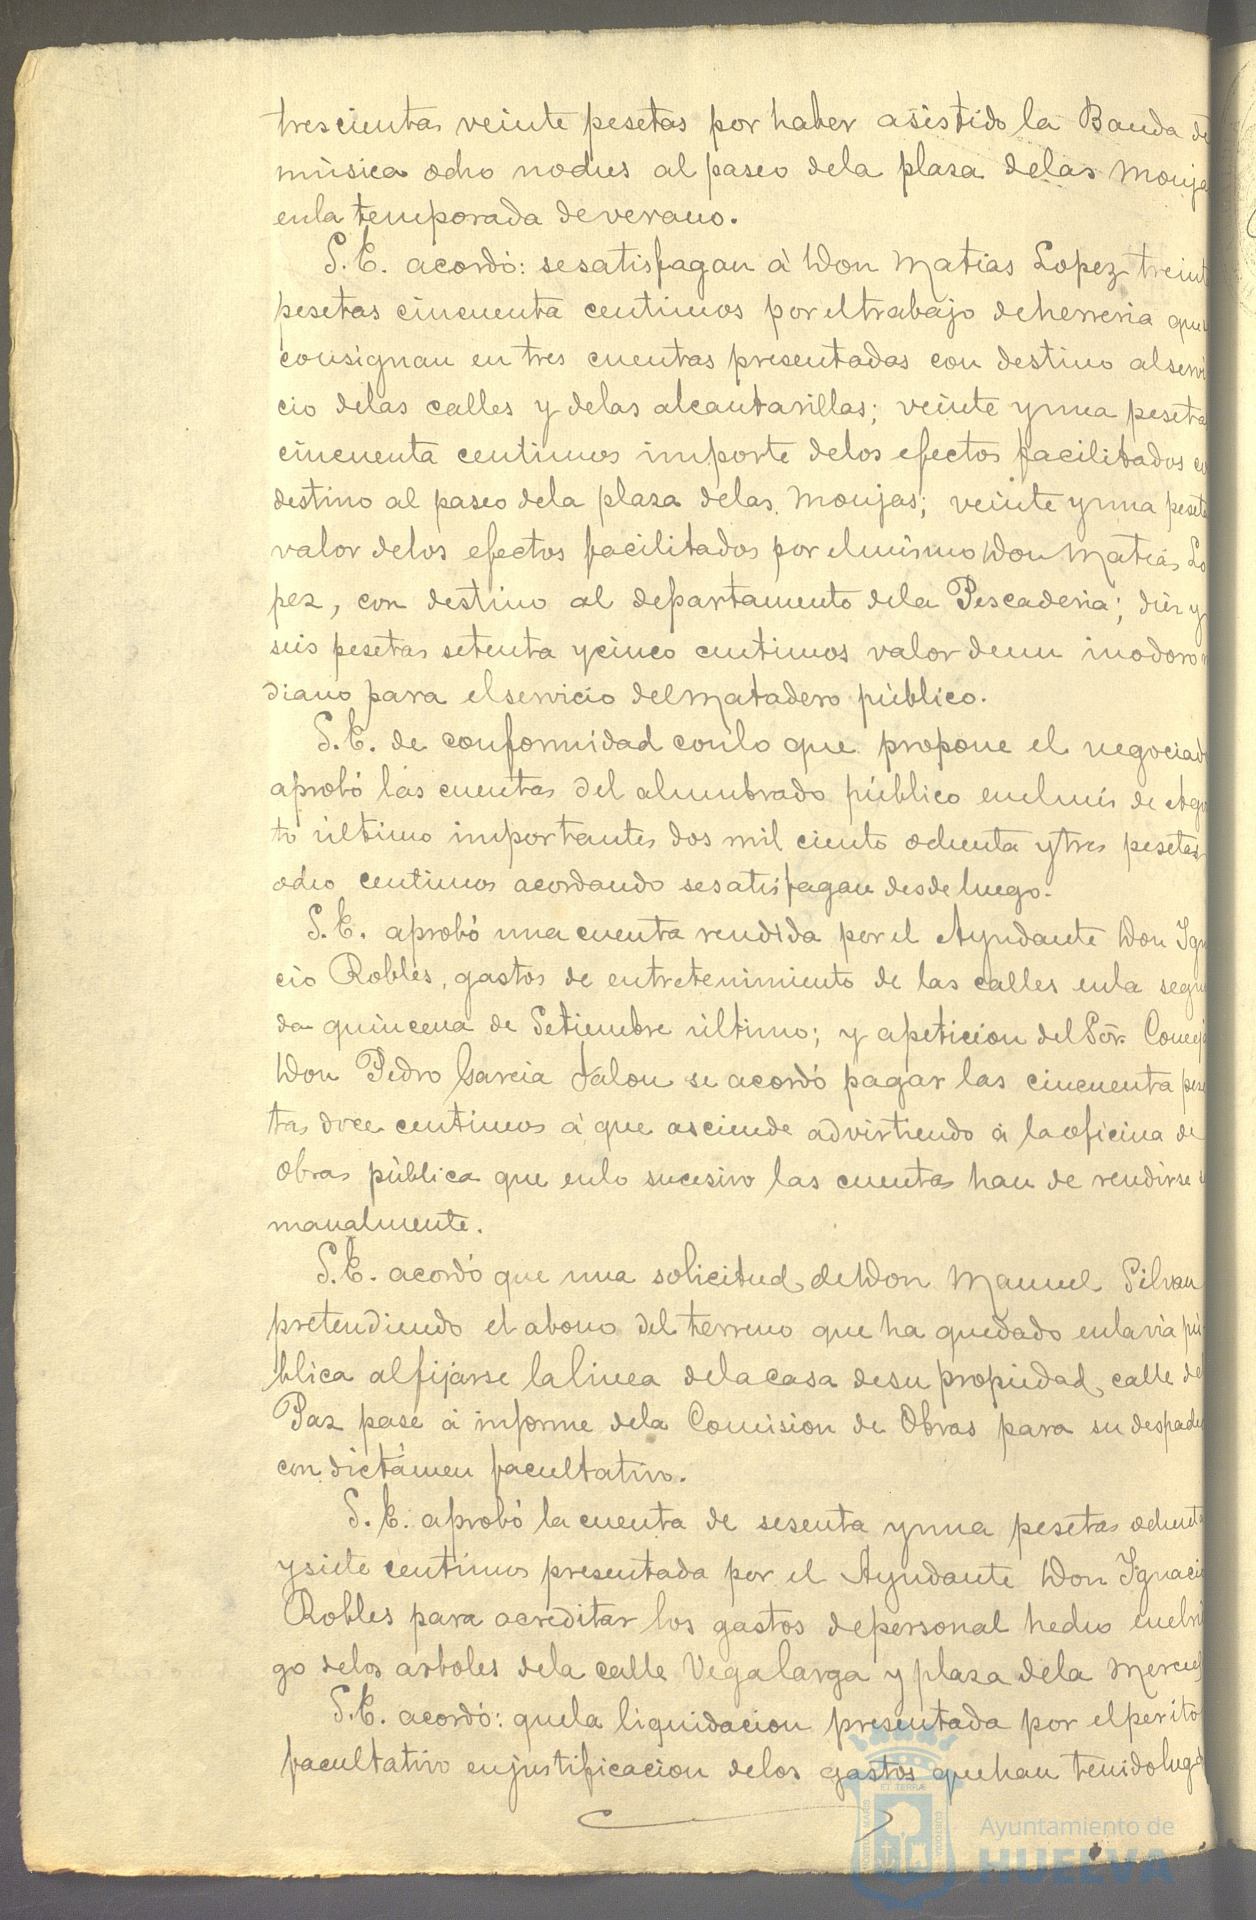 trescientas veinte pesetas por haber asistido la Banda de
música ocho noches al paseo dela plaza delas Monja
enla temporada deverano.
S.E. acordó: sesatisfagan á Don Matias Lopez treint
pesetas cincuenta centimos por eltrabajo deherreria que
consignan en tres cuentas presentadas con destino alservi
cio delas calles y delas alcantarillas; veinte yuna peseta
cincuenta centimos importe delos efectos facilitados co
destino al paseo dela plaza delas Monjas; veinte yuna peseta
valor delos efectos facilitados por elmismo Don Matias Lo
pez, con destino al departamento dela Pescaderia; diez y
seis pesetas setenta ycinco centimos valor deun inodoro
diano para elservicio delMatadero público.
S.E. de conformidad conlo que propone el negociado
aprobó las cuentas del alumbrado público enelmes de Ago
to último importantes dos mil ciento ochenta ytres pesetas
ocho centimos acordando sesatisfagan desdeluego.
S.E. aprobó una cuenta rendida por el Ayudante Don Igna
cio Robles, gastos de entretenimiento de las calles enla segun
da quincena de Setiembre último; y apeticion del Sor. Concej
Don Pedro Garcia Jalon se acordó pagar las cincuenta pese
tas doce centimos á que asciende advirtiendo á laoficina de
obras pública que enlo sucesivo las cuentas han de rendirse
manalmente.
S.E. acordó que una solicitud deDon Manuel Silvan
pretendiendo el abono del terreno que ha quedado enlavia pú
blica alfijarse lalinea delacasa desu propiedad calle de
Paz pase á informe dela Comision de Obras para su despacho
con dictámen facultativo.
S.E. aprobó la cuenta de sesenta yuna pesetas ochenta
ysiete centimos presentada por el Ayudante Don Ignacio
Robles para acreditar los gastos depersonal hecho enelrie
go delos arboles dela calle Vegalarga y plaza dela Merced
S.E. acordó: quela liquidacion presentada por elperito
facultativo enjustificacion delos gastos quehan tenidolugar
ET TERRÆ
Ayuntamiento de
HUELVA